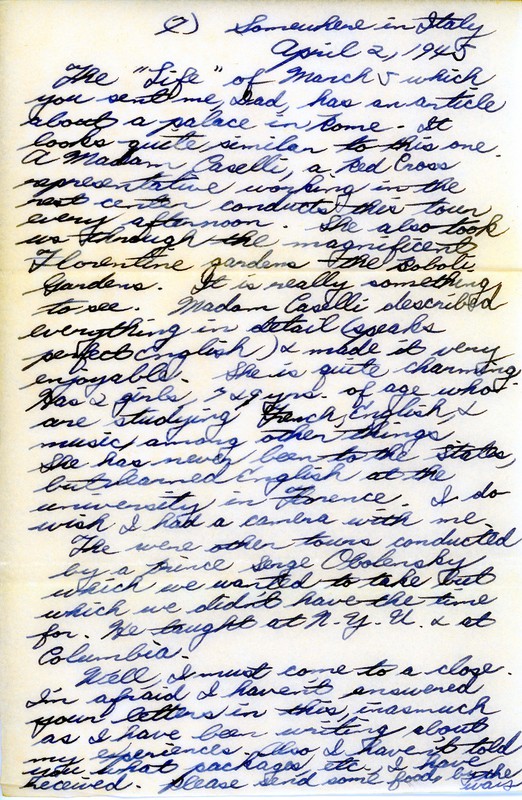 2) Somewhere in Italy
April 2, 1945
The "Life" of March 5 which
you sent me, Dad, has an article
about a palace in Rome. It
looks quite similar to this one.
A Madam Caselli, a Red Cross
representative working in the
rest center conducts this tour
every afternoon. She also took
us through the magnificent
Florentine gardens the Boboli
Gardens. It is really something
to see. Madam Caselli described
everything in detail (speaks
perfect English) & made it very
enjoyable. She is quite charming
Has 2 girls, 7 & 9 yrs. of age who
are studying French, English, &
music, among other things.
She has never been to the States,
but learned English at the
university in Florence. I do
wish I had a camera with me.
The were other tours conducted
by a prince Serge Obolensky
which we wanted to take but
which we didn't have the time
for. He taught at N.Y.U. & at
Columbia.
Well, I must come to a close.
I'm afraid I haven't answered
your letters in this, inasmuch
as I have been writing about
my experiences. Also I haven't told
you what packages, etc. I have
received. Please send some food, by the
way